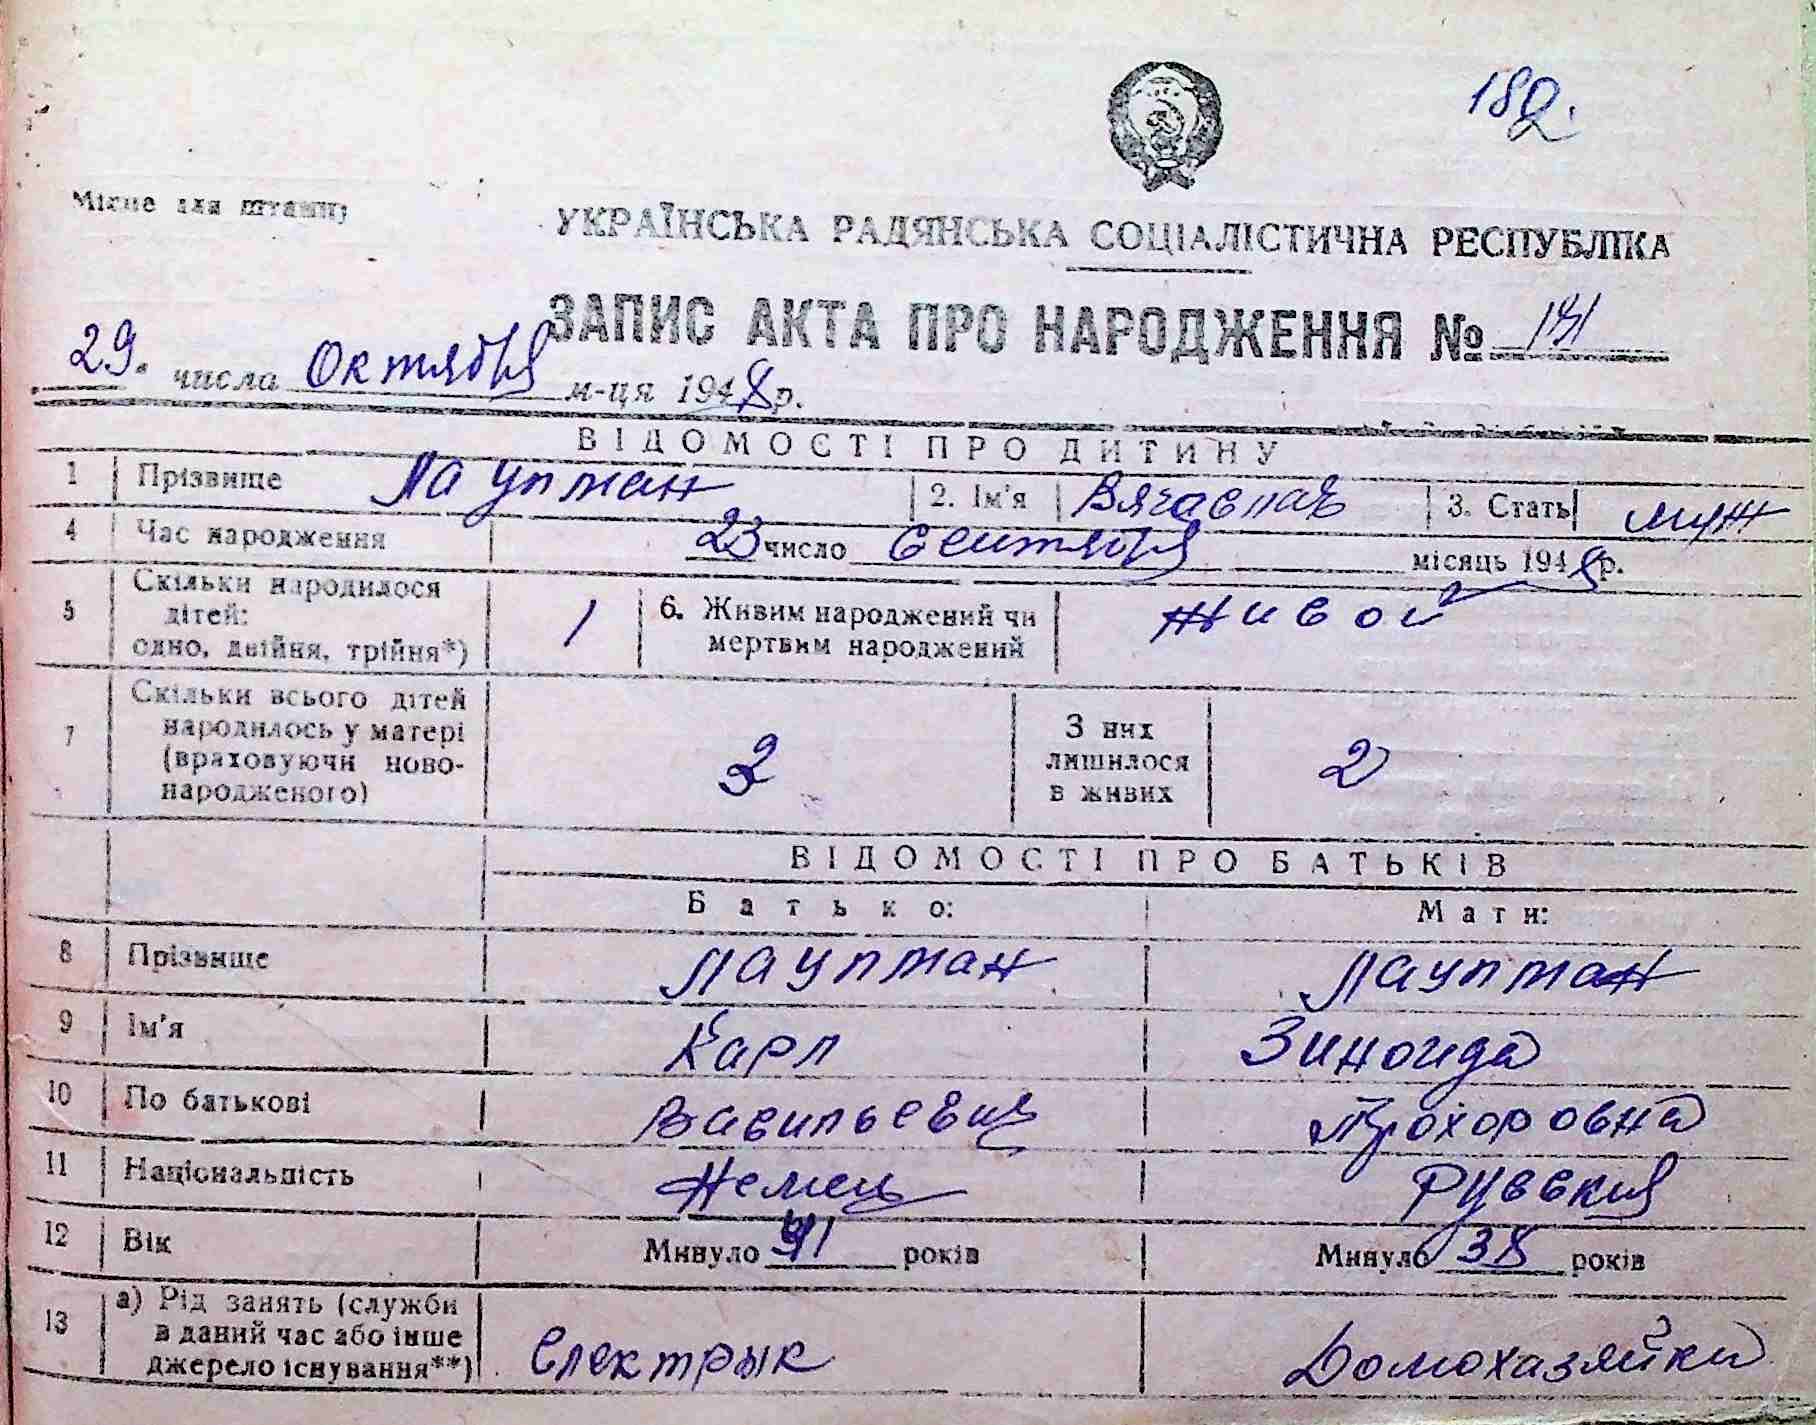 182.
Місце для штампу
УКРАЇНСЬКА РАДЯНСЬКА СОЦІАЛІСТИЧНА РЕСПУБЛІКА
ЗАПИС АКТА ПРО НАРОДЖЕННЯ №
29. числа Октября м-ця 1948 р.
ВІДОМОСТІ ПРО ДИТИНУ
1 Прізвище Лаупман 2. Ім'я Вячаслав 3. Стать муж
4 Час народження 23 число Сентября місяць 1948 р.
5 Скільки народилося дітей: одно, двійня, трійня*) 1 6. Живим народжений чи мертвим народжений Живой
7 Скільки всього дітей народилось у матері (враховуючи ново-народженого) 2 З них лишилося в живих 2
ВІДОМОСТІ ПРО БАТЬКІВ
Батько: Мати:
8 Прізвище Лаупман Лаупман
9 Ім'я Карл Зиноида
10 По батькові Васильевич Прохоровна
11 Національність Немец Русския
12 Вік Минуло 41 років Минуло 38 років
13 а) Рід занять (служби в даний час або інше джерело існування**) Електрык Домохазяйка